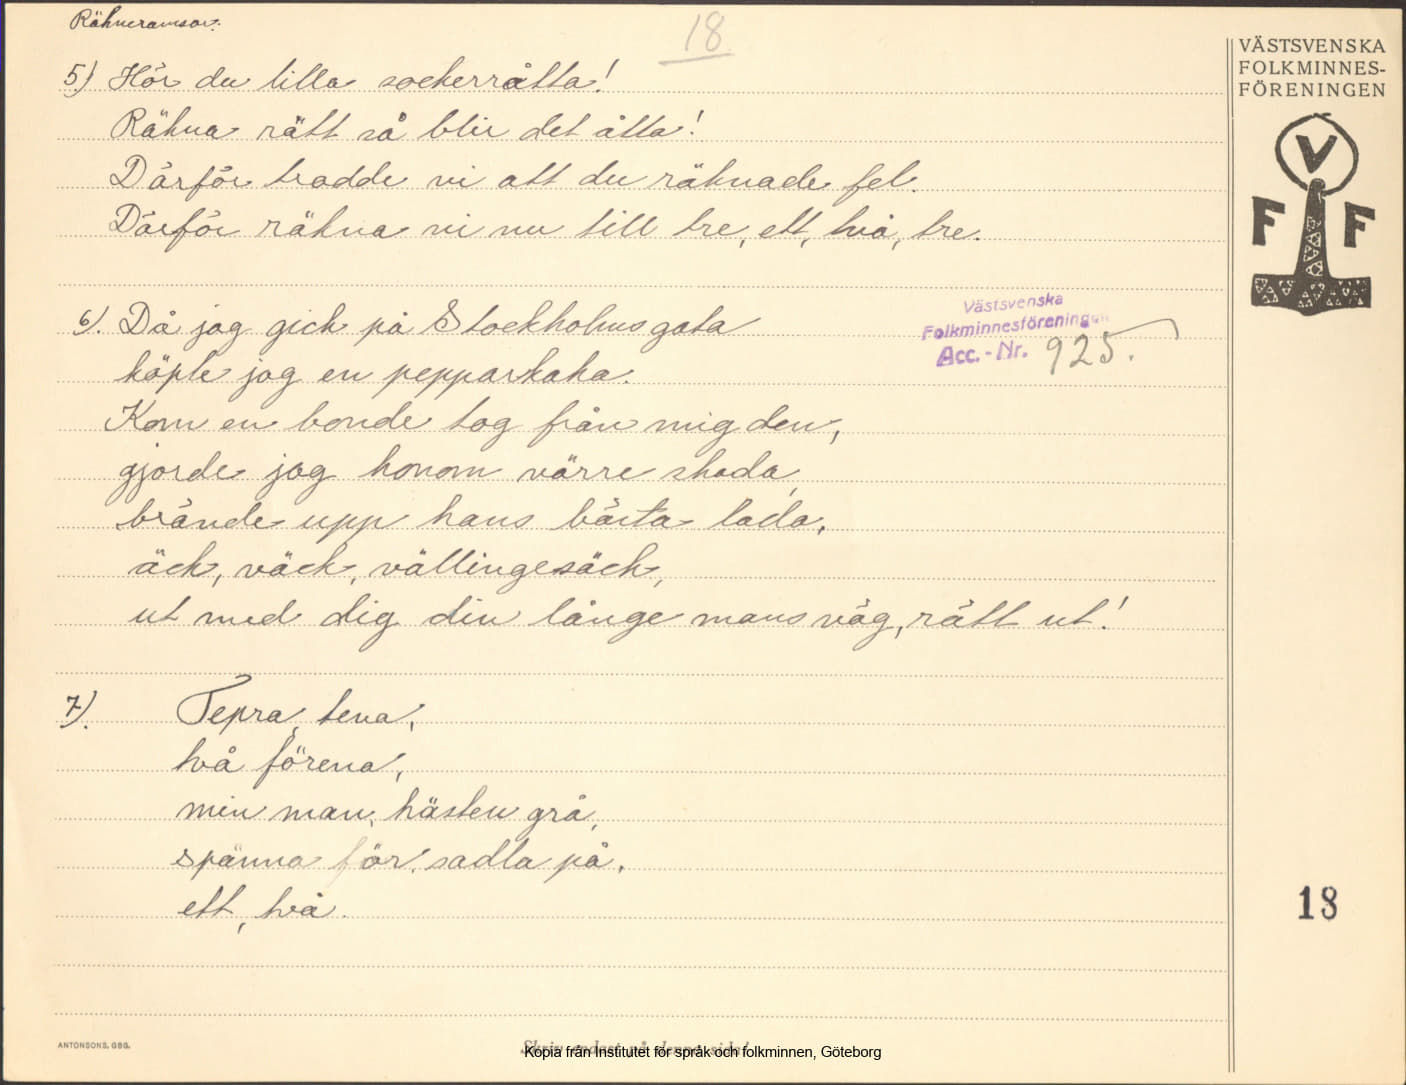 Räkneramsor.
18
5) Hör du lilla sockerråtta!
Räkna rätt så blir det åtta!
Därför trodde vi att du räknade fel.
Därför räkna vi nu till tre, ett, två, tre.
6). Då jag gick på Stockholmsgata
köpte jag en pepparkaka.
Kom en bonde tog från mig den,
gjorde jag honom värre skada,
brände upp hans bästa lada,
äck, väck, vällingesäck,
ut med dig din långe mans väg, rätt ut!
7). Tepra, tena,
två förena,
min man, hästen grå,
spänna för, sadla på,
ett, två.
VÄSTSVENSKA
FOLKMINNES-
FÖRENINGEN
V
F F
Västsvenska
Folkminnesföreningen
Acc.-Nr. 925.
18
ANTONSONS, GBG.
Skriv endast på denna sida!
Kopia från Institutet för språk och folkminnen, Göteborg